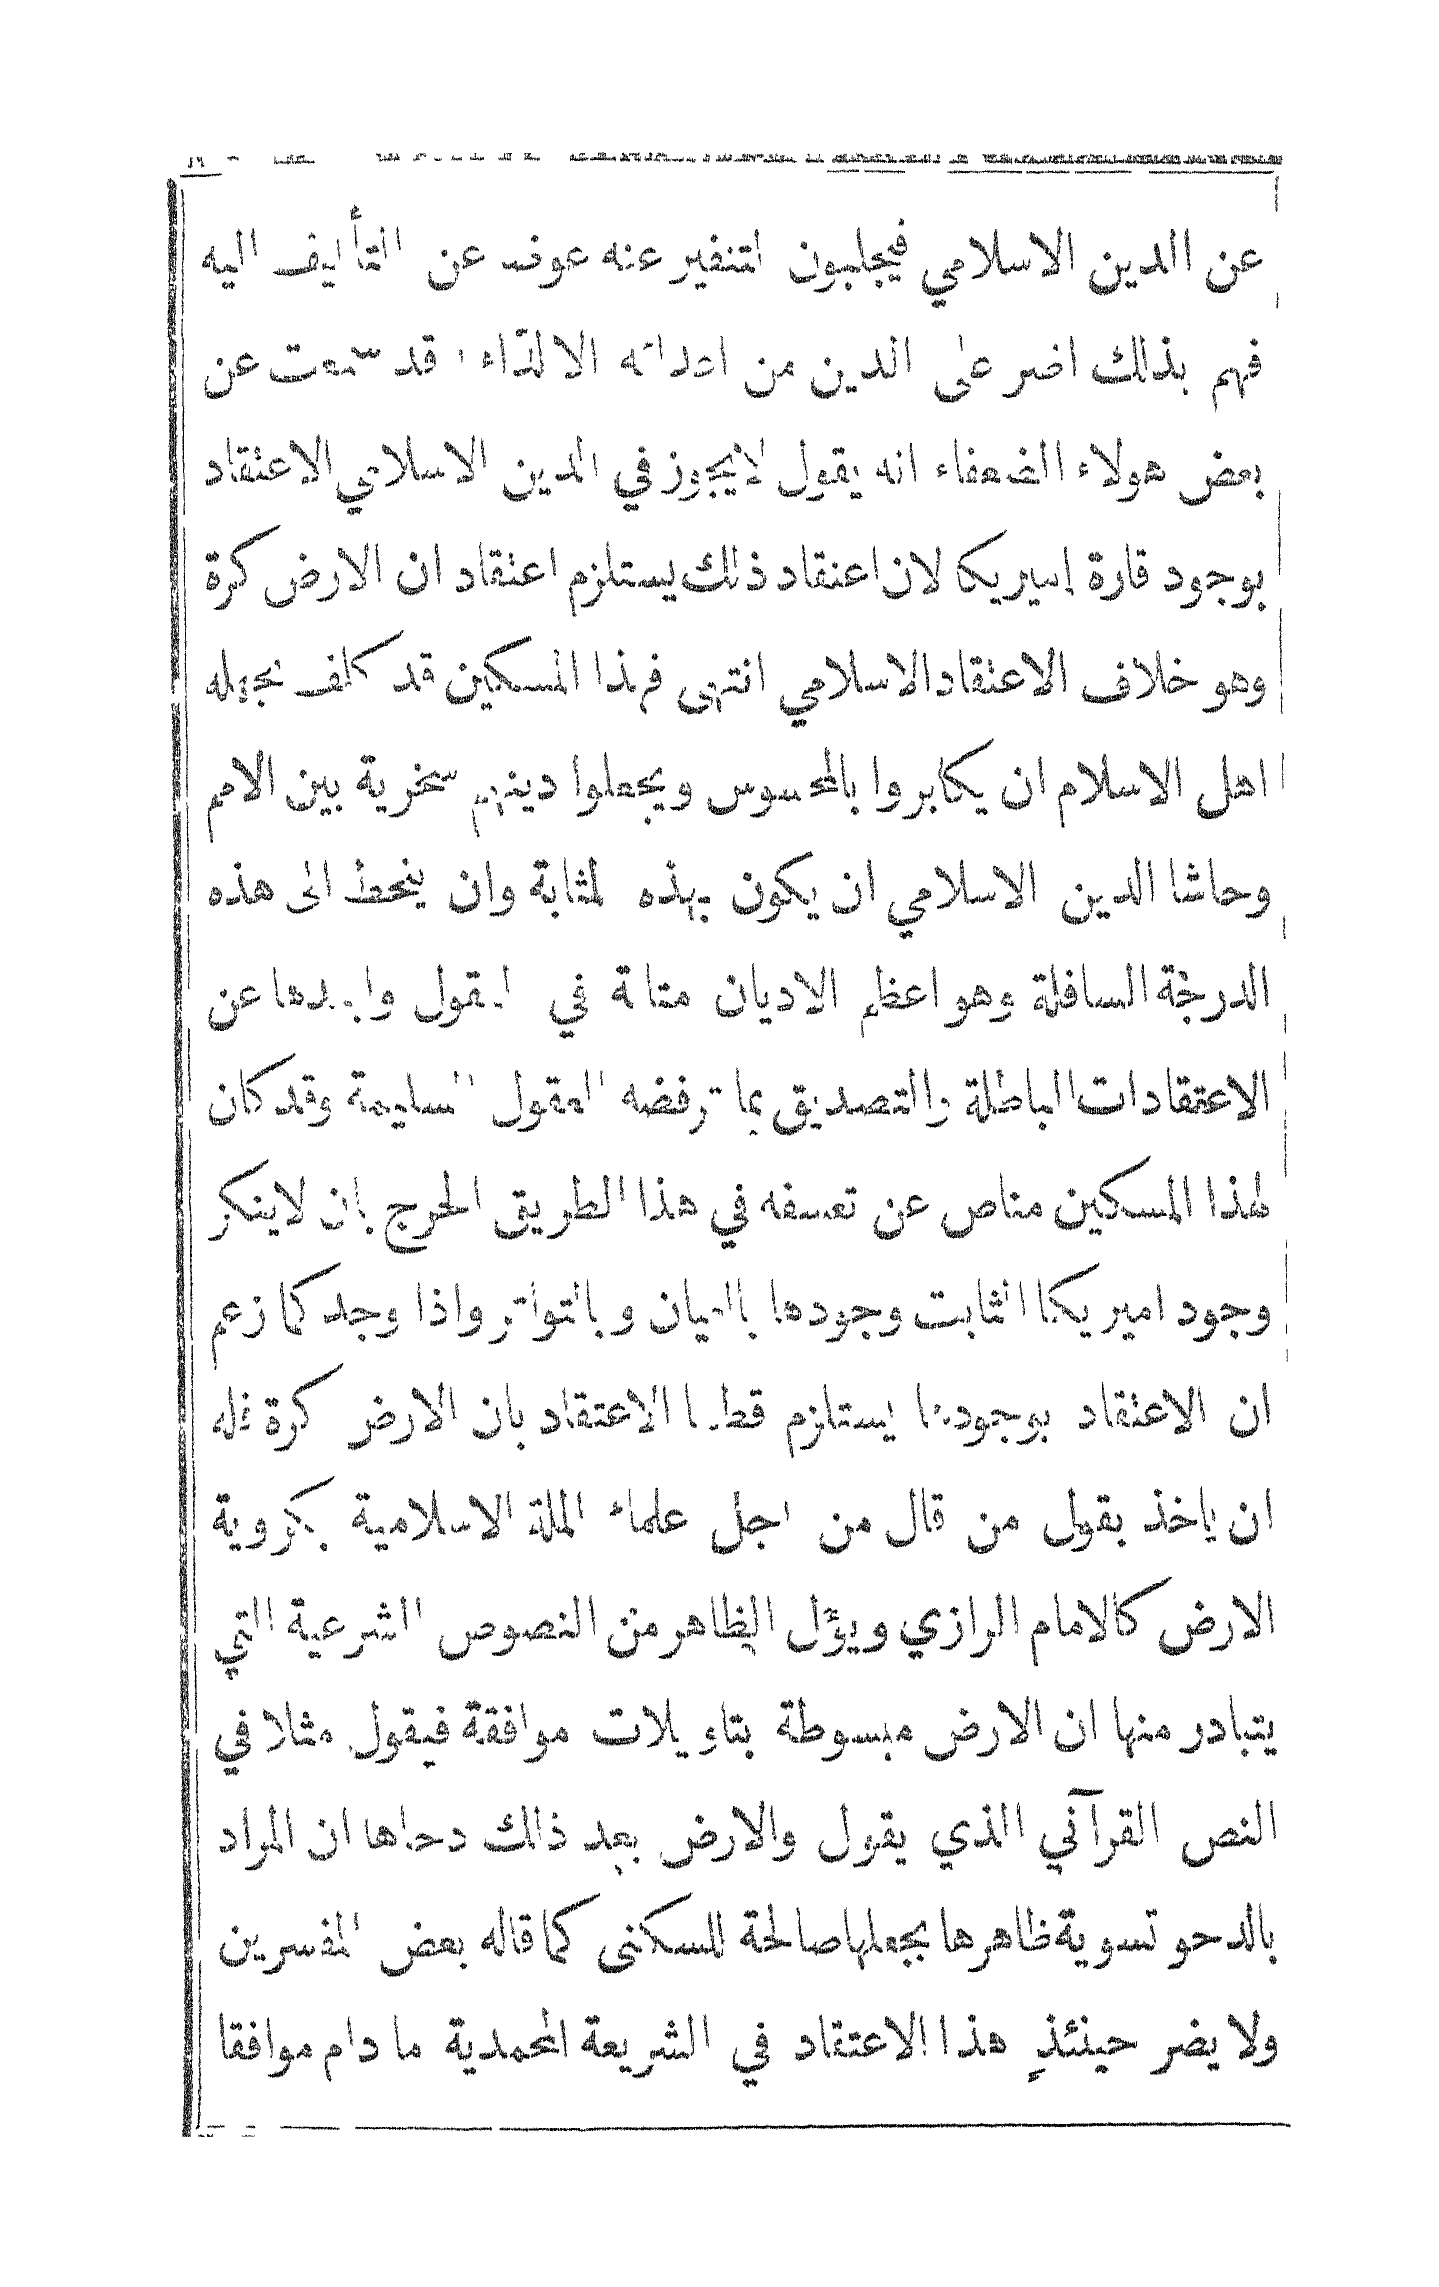 عن الدين الاسلامي فيجلبون التنفير عنه عوضا عن التأليف اليه
فهم بذلك اضر على الدين من اعدائه الالداء قد سمعت عن
بعض هولاء الضعفاء انه يقول لايجوز في الدين الاسلامي الاعتقاد
بوجود قارة اميريكا لان اعتقاد ذلك يستلزم اعتقاد ان الارض كرة
وهو خلاف الاعتقاد الاسلامي انتهى فهذا المسكين قد كلف بجهله
اهل الاسلام ان يكابروا بالمحسوس ويجعلوا دينهم سخرية بين الامم
وحاشا الدين الاسلامي ان يكون بهذه المثابة وان ينحط الى هذه
الدرجة السافلة وهو اعظم الاديان متانة في العقول وابعدها عن
الاعتقادات الباطلة والتصديق بما ترفضه العقول السليمة وقد كان
لهذا المسكين مناص عن تعسفه في هذا الطريق الحرج بان لاينكر
وجود اميريكا الثابت وجودها بالعيان وبالتواتر واذا وجد كما زعم
ان الاعتقاد بوجودها يستلزم قطعا الاعتقاد بان الارض كرة فله
ان ياخذ بقول من قال من اجل علماء الملة الاسلامية بكروية
الارض كالامام الرازي ويؤل الظاهر من النصوص الشرعية التي
يتبادر منها ان الارض مبسوطة بتاويلات موافقة فيقول مثلا في
النص القرآني الذي يقول والارض بعد ذالك دحاها ان المراد
بالدحو تسوية ظاهرها بجعلها صالحة للسكنى كما قاله بعض المفسرين
ولا يضر حينئذ هذا الاعتقاد في الشريعة المحمدية ما دام موافقا